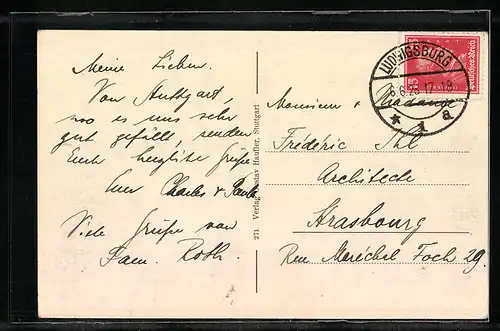 Meine Lieben.
Von Stuttgart,
wo es uns sehr
gut gefällt, senden
Euch herzliche Grüsse
Eure Charles &
Viele Grüsse von
Fam. Roth.
271 Verlag Gustav Haufler, Stuttgart
LUDWIGSBURG
* 1 a
15
Deutsches Reich
Monsieur & Madame
Frédéric Ihl
Architecte
Strasbourg
Rue Maréchal Foch 29.